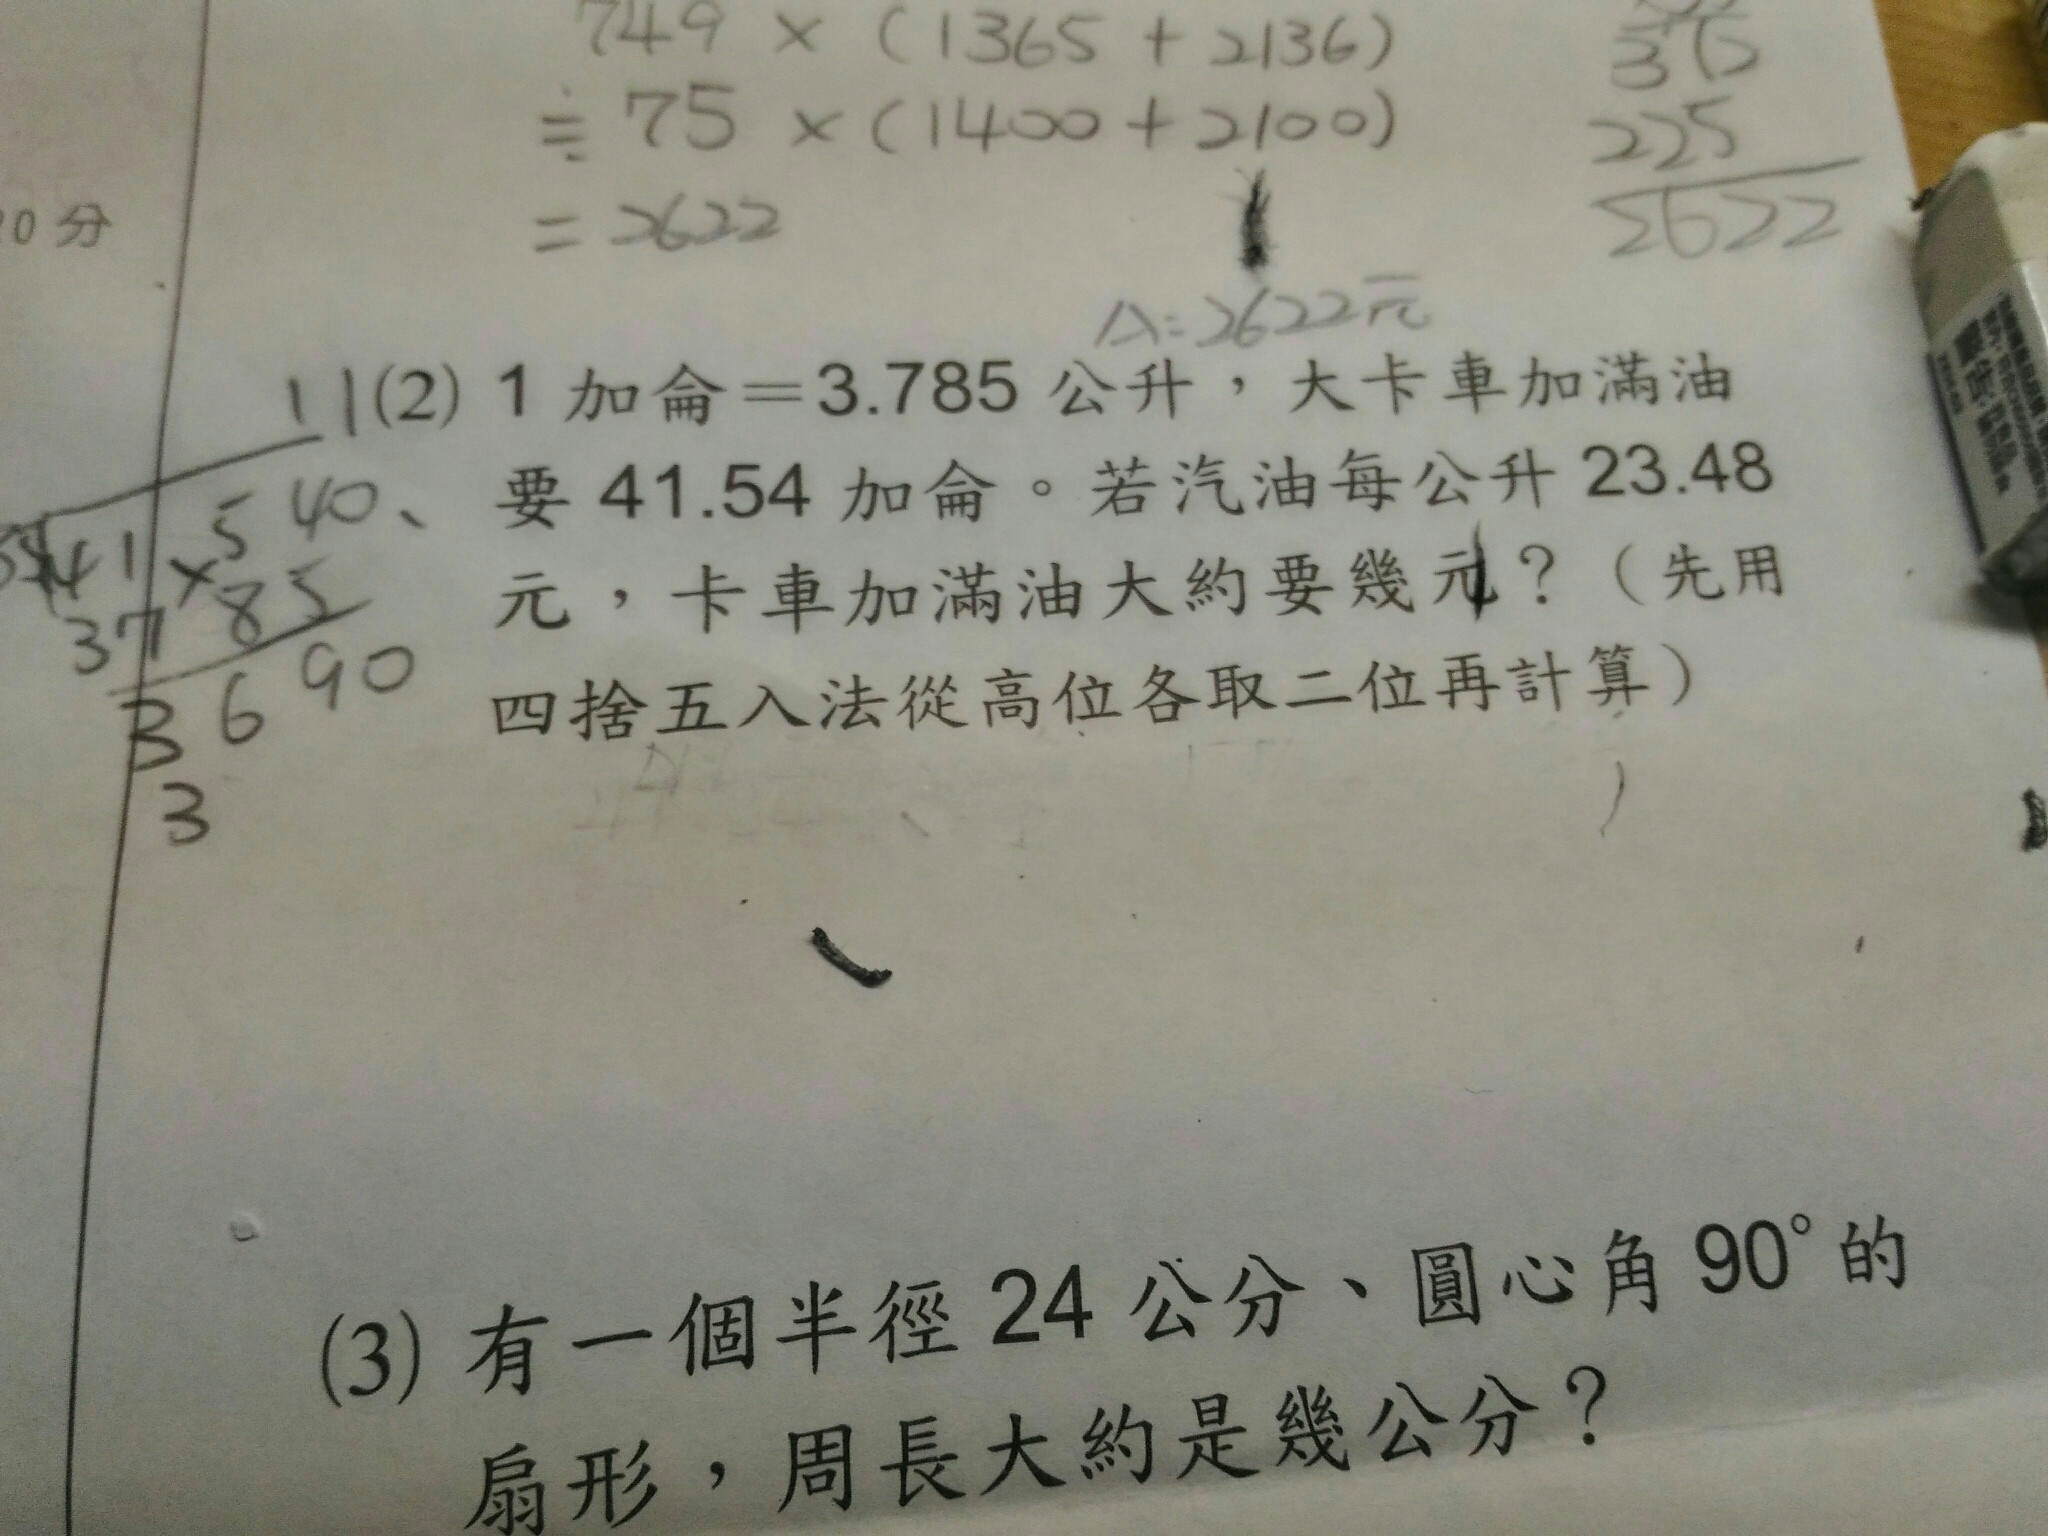 749 × (1365 + 2136)
≒ 75 × (1400 + 2100)
= 2622
225
2622
A: 2622元
0分
11
(2) 1 加侖＝3.785 公升，大卡車加滿油
要 41.54 加侖。若汽油每公升 23.48
元，卡車加滿油大約要幾元？（先用
四捨五入法從高位各取二位再計算）
41
540、
37
×85
3690
3
(3) 有一個半徑 24 公分、圓心角 90° 的
扇形，周長大約是幾公分？